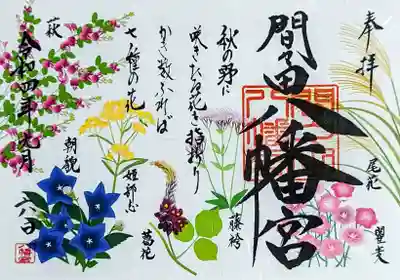 奉拝
間々田八幡宮
秋の野に
咲きたる花を指折り
かき数ふれば
七種の花
令和四年九月
六日
萩
朝貌
姫部志
葛花
藤袴
尾花
瞿麦